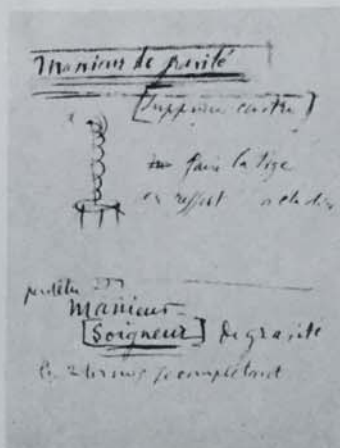 Manieur de gravité
[Supprimer centre]
faire la tige
en ressort
peut être
Manieur
[Soigneur] de gravité
les 2 termes se complétant